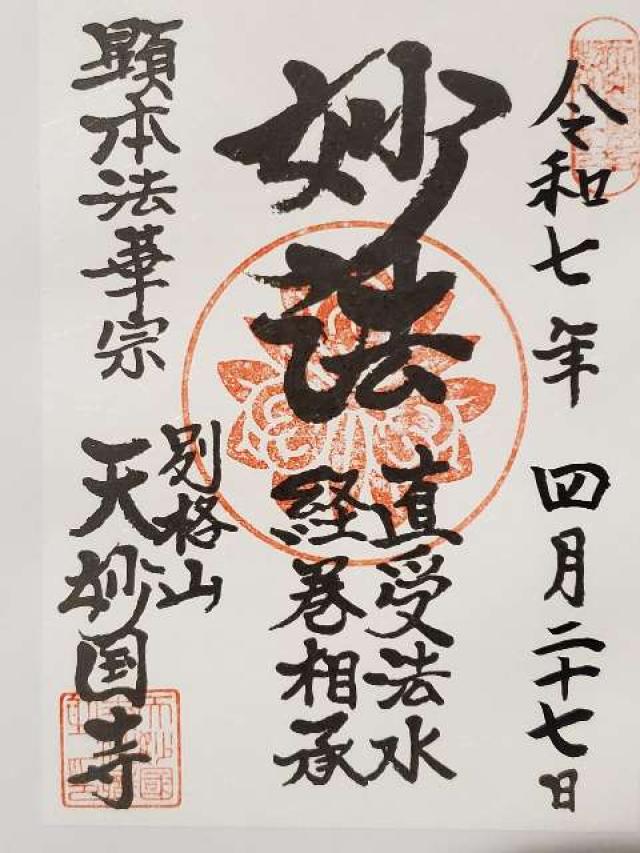 令和七年 四月二十七日
妙法
直受法水
経巻相承
顕本法華宗
別格山
天妙国寺